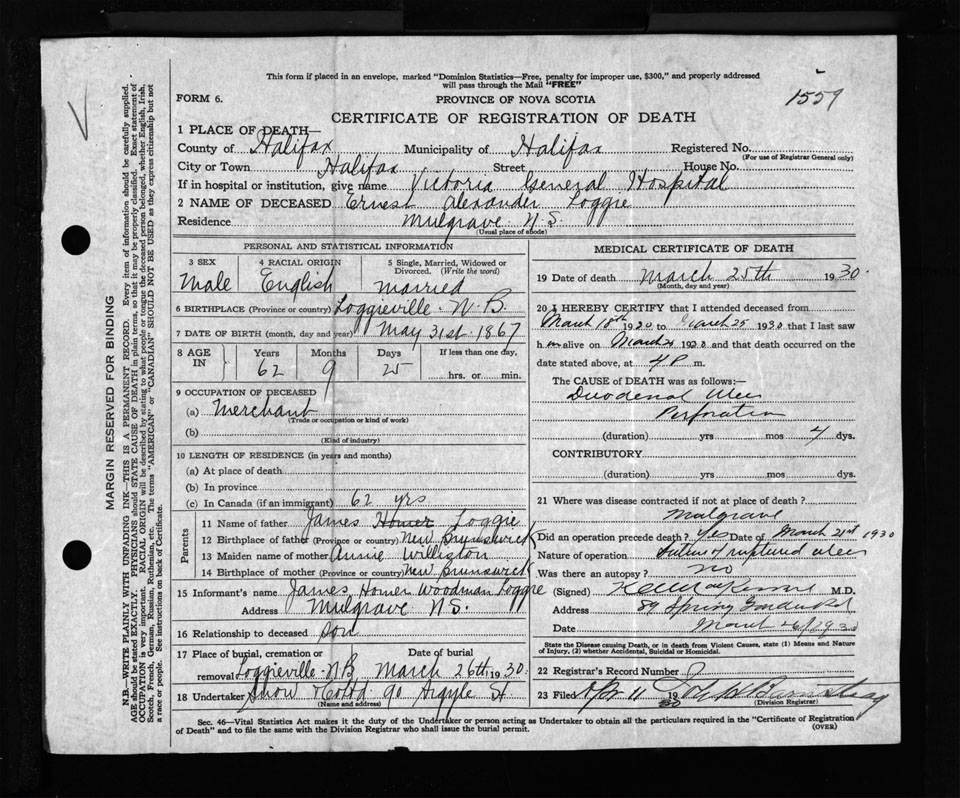 This form if placed in an envelope, marked "Dominion Statistics—Free, penalty for improper use, $300," and properly addressed
will pass through the Mail "FREE"
1559
FORM 6.
PROVINCE OF NOVA SCOTIA
CERTIFICATE OF REGISTRATION OF DEATH
1 PLACE OF DEATH—
County of Halifax Municipality of Halifax Registered No.
(For use of Registrar General only)
City or Town Halifax Street House No.
If in hospital or institution, give name Victoria General Hospital
2 NAME OF DECEASED Ernest Alexander Loggie
Residence Mulgrave N.S.
(Usual place of abode)
PERSONAL AND STATISTICAL INFORMATION
3 SEX 4 RACIAL ORIGIN 5 Single, Married, Widowed or
Divorced. (Write the word)
Male English married
6 BIRTHPLACE (Province or country) Loggieville N.B.
7 DATE OF BIRTH (month, day and year) May 31st 1867
8 AGE IN Years Months Days If less than one day,
62 9 25 hrs. or min.
9 OCCUPATION OF DECEASED
(a) Merchant
(Trade or occupation or kind of work)
(b)
(Kind of industry)
10 LENGTH OF RESIDENCE (in years and months)
(a) At place of death
(b) In province
(c) In Canada (if an immigrant) 62 yrs
Parents
11 Name of father James Homer Loggie
12 Birthplace of father (Province or country) New Brunswick
13 Maiden name of mother Annie Williston
14 Birthplace of mother (Province or country) New Brunswick
15 Informant's name James Homer Woodman Loggie
Address Mulgrave N.S.
16 Relationship to deceased son
17 Place of burial, cremation or Date of burial
removal Loggieville N.B. March 26th 1930.
18 Undertaker Snow & Co Ltd 90 Argyle St
(Name and address)
MEDICAL CERTIFICATE OF DEATH
19 Date of death March 25th 1930.
(Month, day and year)
20 I HEREBY CERTIFY that I attended deceased from
March 18th 1930 to March 25 1930 that I last saw
h im alive on March 1930 and that death occurred on the
date stated above, at 4 P. m.
The CAUSE of DEATH was as follows:—
Duodenal Ulcer
Perforation
(duration) yrs mos 4 dys.
CONTRIBUTORY
(duration) yrs mos dys.
21 Where was disease contracted if not at place of death?
Mulgrave
Did an operation precede death? Yes Date of March 21st 1930
Nature of operation Suture of ruptured ulcer
Was there an autopsy? no
(Signed) M.D.
Address 89 Spring Garden Rd
Date March 26/1930
State the Disease causing Death, or in death from Violent Causes, state (1) Means and Nature
of Injury, (2) whether Accidental, Suicidal or Homicidal.
22 Registrar's Record Number
23 Filed Apr 11 1930
(Division Registrar)
Sec. 46—Vital Statistics Act makes it the duty of the Undertaker or person acting as Undertaker to obtain all the particulars required in the "Certificate of Registration
of Death" and to file the same with the Division Registrar who shall issue the burial permit.
(OVER)
MARGIN RESERVED FOR BINDING
N.B.—WRITE PLAINLY WITH UNFADING INK—THIS IS A PERMANENT RECORD. Every item of information should be carefully supplied.
AGE should be stated EXACTLY. PHYSICIANS should STATE CAUSE OF DEATH in plain terms, so that it may be properly classified. Exact statement of
OCCUPATION is very important. RACIAL ORIGIN will be described by stating to what people or tongue the deceased person belonged, whether English, Irish,
Scotch, French, German, Russian, Ruthenian, etc. The terms "AMERICAN" or "CANADIAN" SHOULD NOT BE USED as they express citizenship but not
a race or people. See instructions on back of Certificate.